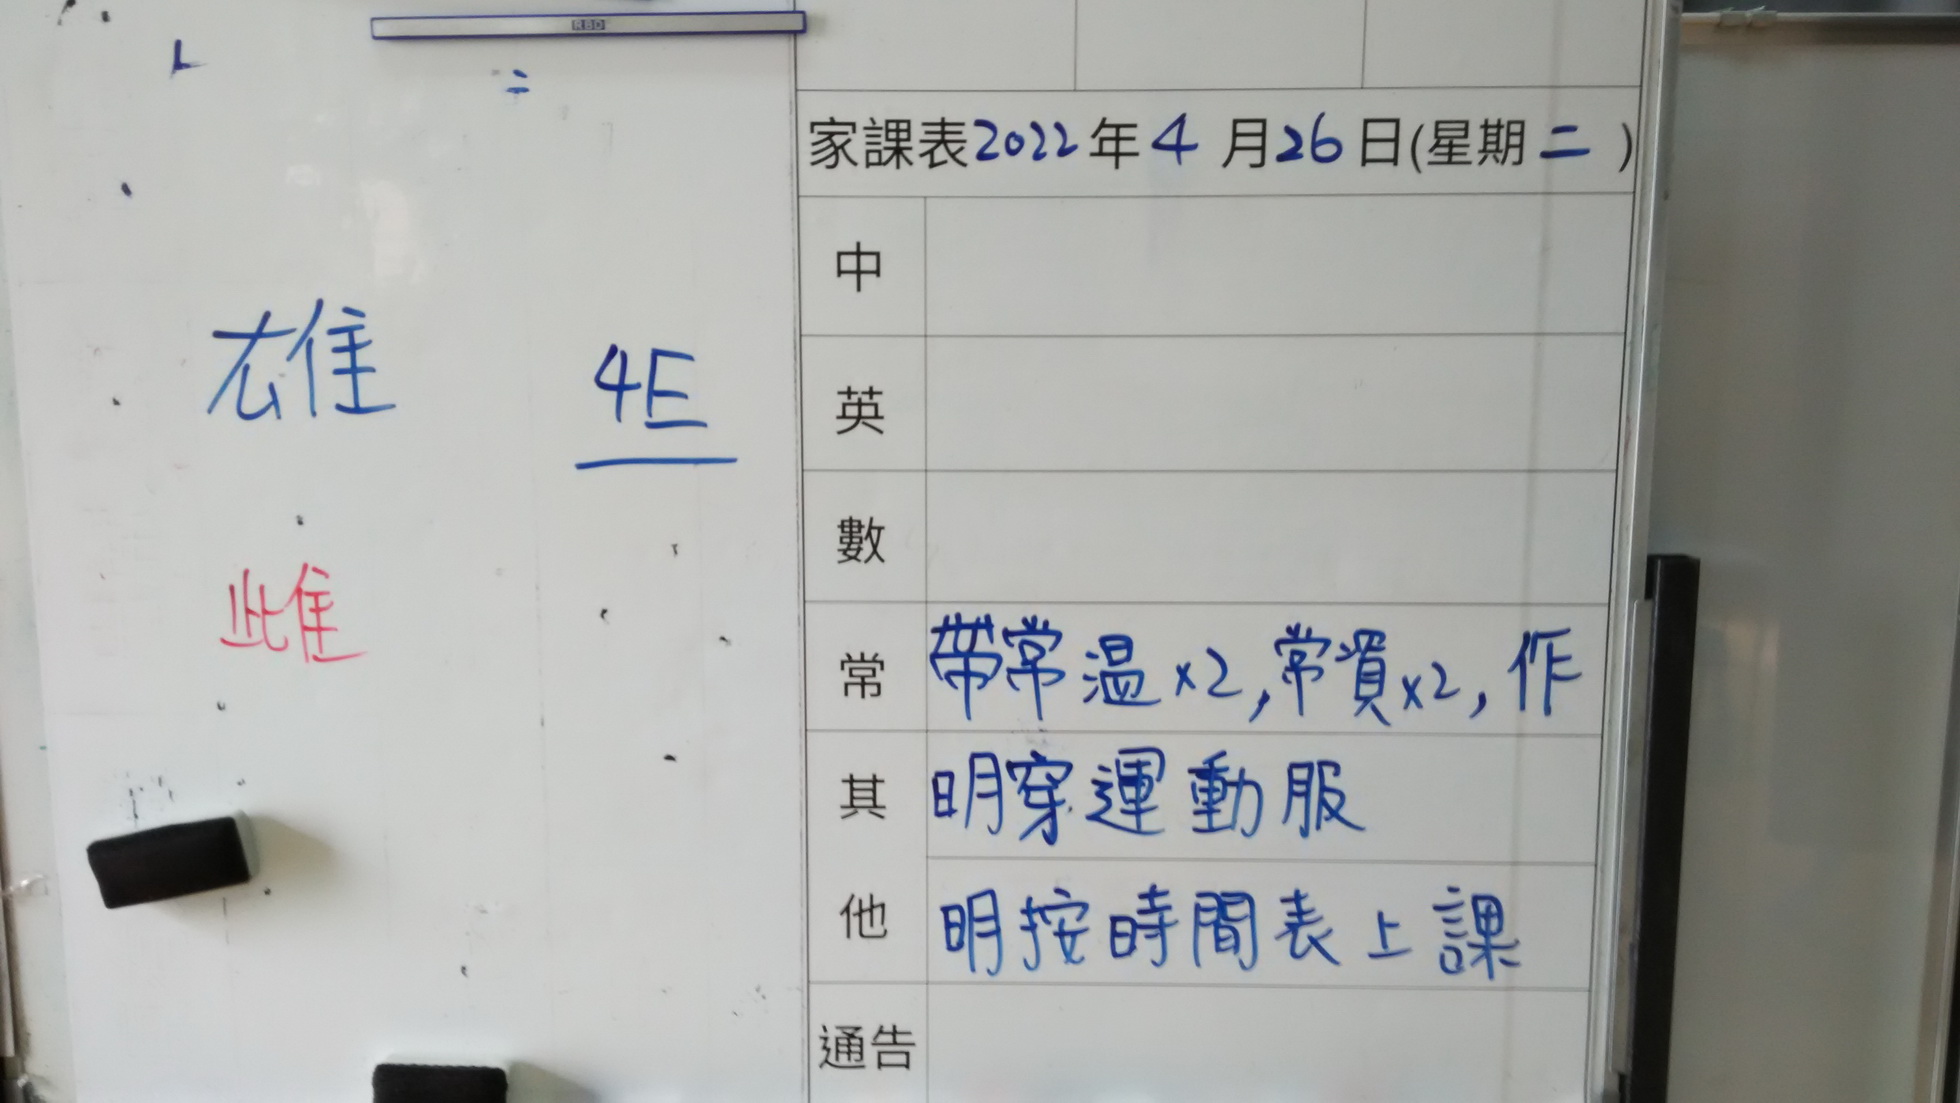 RBD
家課表2022年4月26日(星期二)
雄
4E
雌
中
英
數
常 帶常温x2,常資x2,作
其他
明穿運動服
明按時間表上課
通告